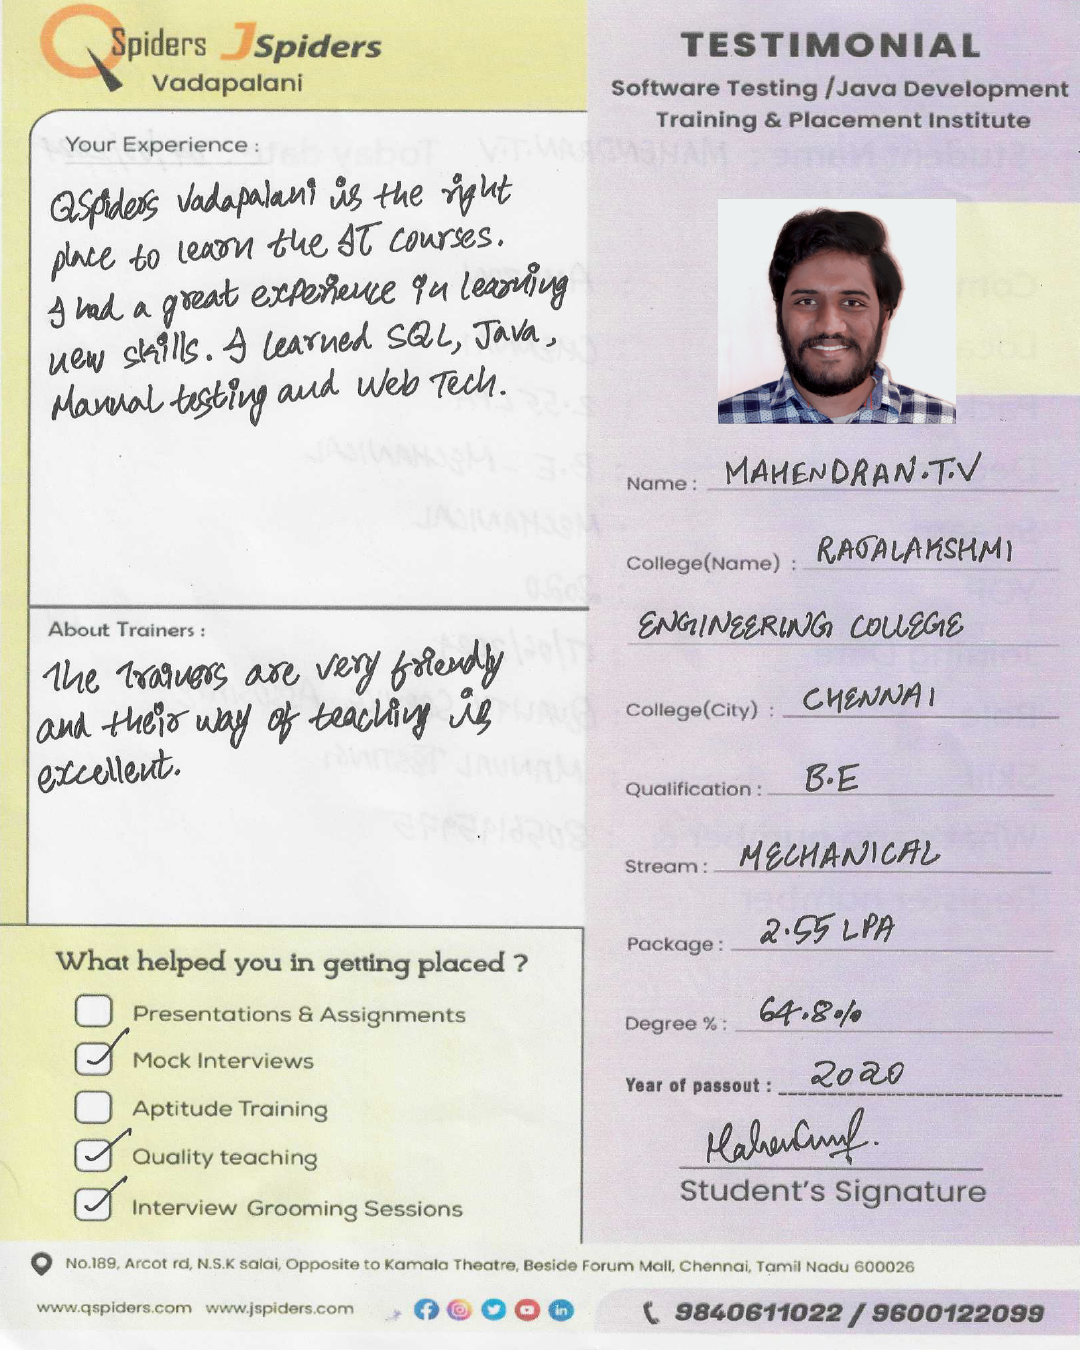 QSpiders JSpiders
Vadapalani
Your Experience :
QSpiders Vadapalani is the right
place to learn the IT courses.
I had a great experience in learning
new skills. I learned SQL, Java,
Manual testing and Web Tech.
About Trainers :
The Trainers are very friendly
and their way of teaching is
excellent.
What helped you in getting placed ?
Presentations & Assignments
Mock Interviews
Aptitude Training
Quality teaching
Interview Grooming Sessions
TESTIMONIAL
Software Testing /Java Development
Training & Placement Institute
Name : MAHENDRAN.T.V
College(Name) : RAJALAKSHMI
ENGINEERING COLLEGE
College(City) : CHENNAI
Qualification : B.E
Stream : MECHANICAL
Package : 2.55 LPA
Degree % : 64.8%
Year of passout : 2020
Student's Signature
No.189, Arcot rd, N.S.K salai, Opposite to Kamala Theatre, Beside Forum Mall, Chennai, Tamil Nadu 600026
www.qspiders.com www.jspiders.com
9840611022 / 9600122099